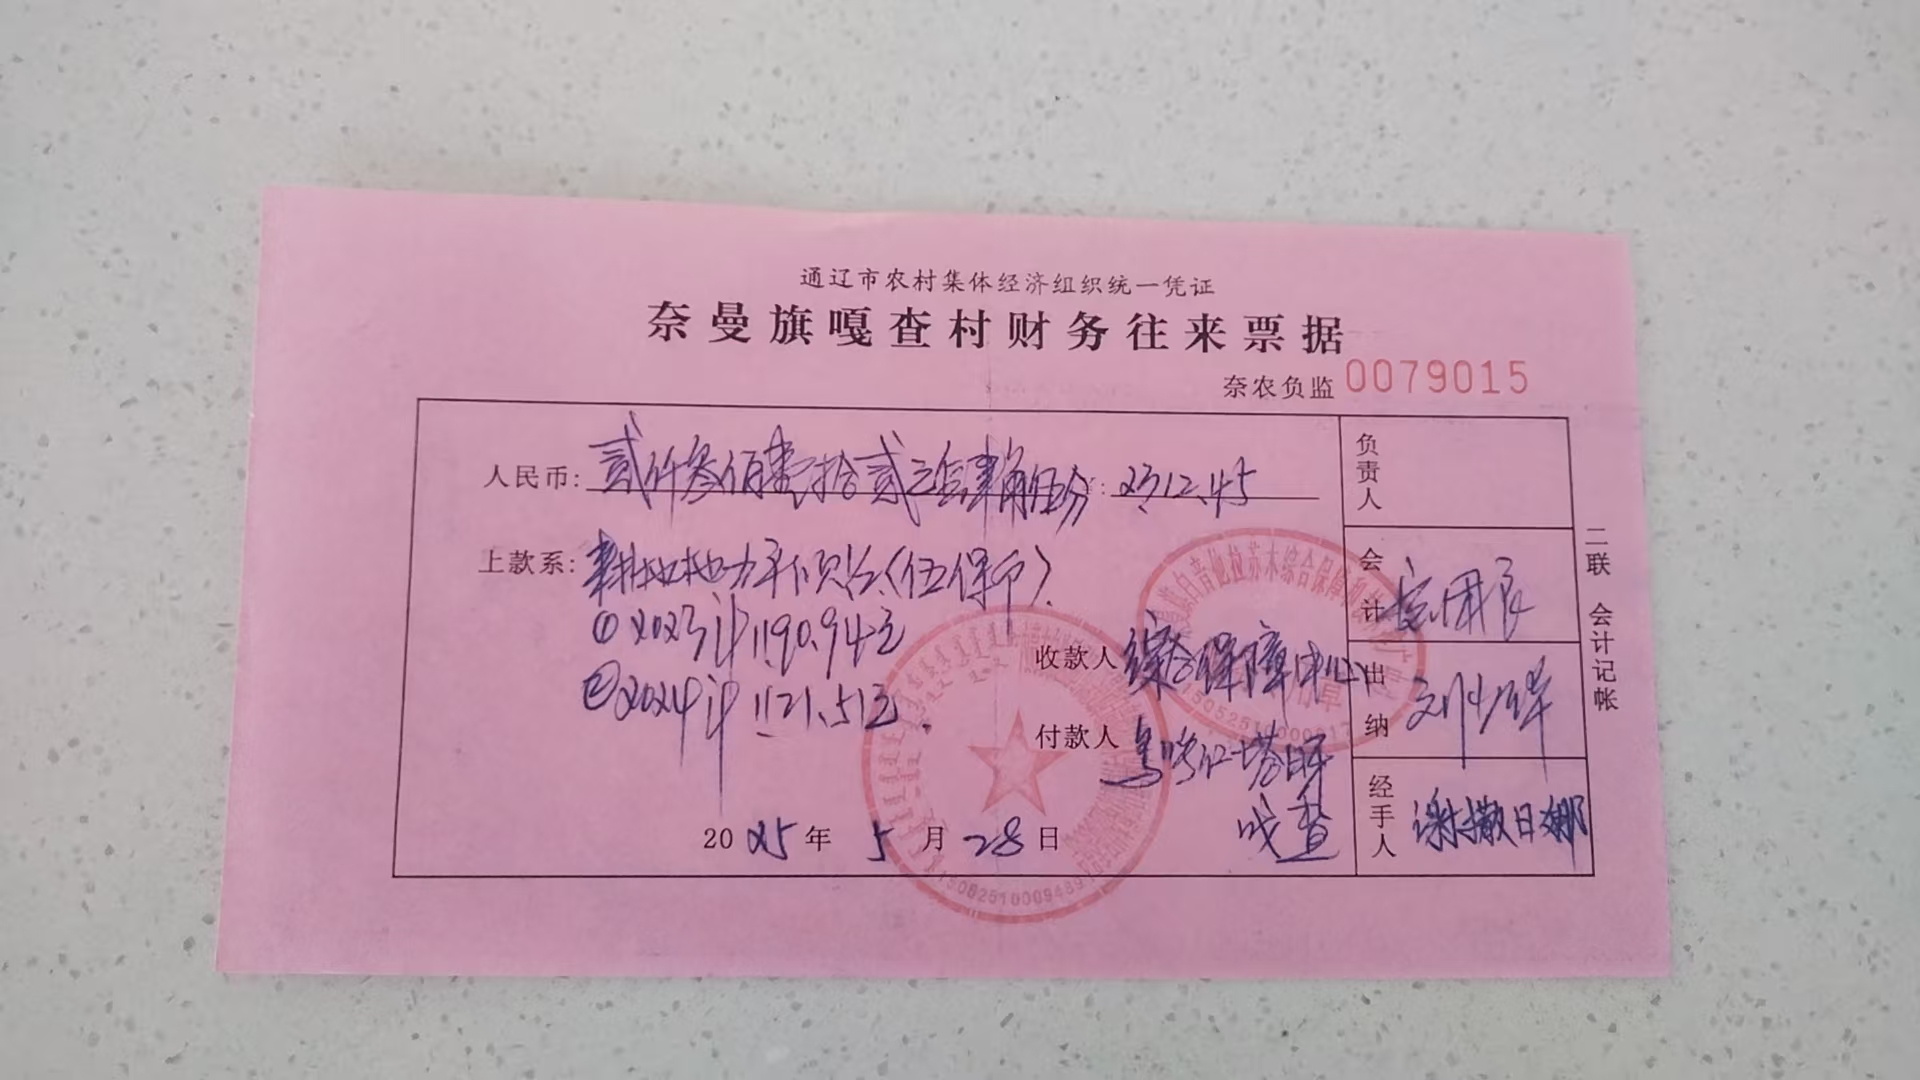 通辽市农村集体经济组织统一凭证
奈曼旗嘎查村财务往来票据
奈农负监 0079015
人民币: 贰仟叁佰壹拾贰元肆角伍分 ¥: 2312.45
上款系: 耕地地力补贴款(伍保户).
① 2023计1190.94元
②2024计1121.51元.
收款人 综合保障中心
付款人
嘎查
2025年 5月 28日
负责人
会计
出纳
经手人 谢撒日娜
二联 会计记帐